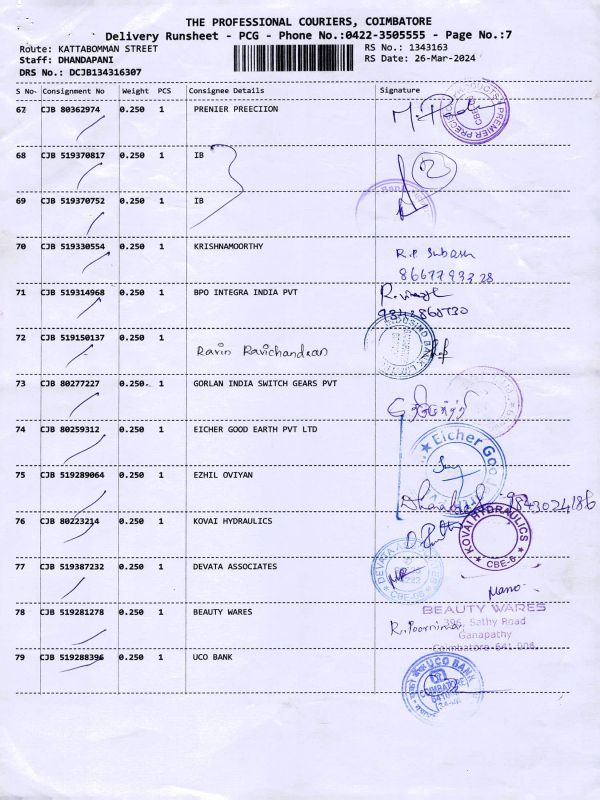 THE PROFESSIONAL COURIERS, COIMBATORE
Delivery Runsheet - PCG - Phone No.:0422-3505555 - Page No.:7
Route: KATTABOMMAN STREET
RS No.: 1343163
Staff: DHANDAPANI
RS Date: 26-Mar-2024
DRS No.: DCJB134316307
S No Consignment No Weight PCS Consignee Details Signature
67 CJB 80362974 0.250 1 PRENIER PREECIION
68 CJB 519370817 0.250 1 IB
69 CJB 519370752 0.250 1 IB
70 CJB 519330554 0.250 1 KRISHNAMOORTHY R.P Subash
8667793328
71 CJB 519314968 0.250 1 BPO INTEGRA INDIA PVT
72 CJB 519150137 0.250 1 Ravin Ravichandran
73 CJB 80277227 0.250 1 GORLAN INDIA SWITCH GEARS PVT
74 CJB 80259312 0.250 1 EICHER GOOD EARTH PVT LTD Eicher Goo
75 CJB 519289064 0.250 1 EZHIL OVIYAN 9843024186
76 CJB 80223214 0.250 1 KOVAI HYDRAULICS KOVAI HYDRAULICS CBE-6
77 CJB 519387232 0.250 1 DEVATA ASSOCIATES Mano
78 CJB 519281278 0.250 1 BEAUTY WARES R. Poornima
BEAUTY WARES
396, Sathy Road
Ganapathy
Coimbatore-641 006
79 CJB 519288396 0.250 1 UCO BANK UCO BANK
COIMBATORE